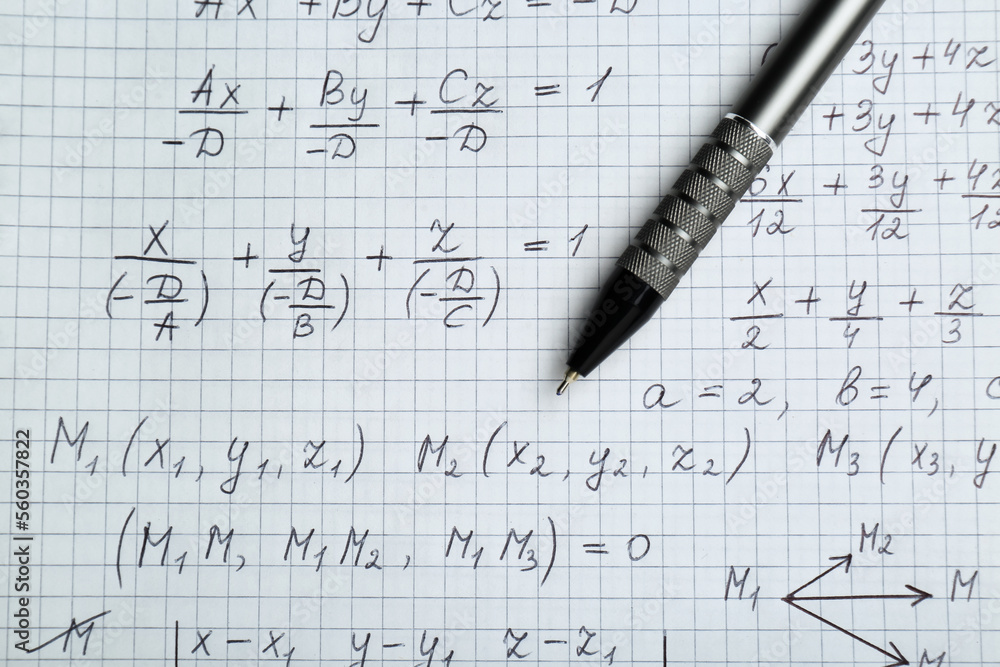 Ax + By + Cz = -D
Ax/-D + By/-D + Cz/-D = 1
x/(-D/A) + y/(-D/B) + z/(-D/C) = 1
3y + 4z
+ 3y + 4z
6x/12 + 3y/12 + 4z/12
x/2 + y/4 + z/3
a = 2, b = 4, c
M₁(x₁, y₁, z₁) M₂(x₂, y₂, z₂) M₃(x₃, y
(M₁M, M₁M₂, M₁M₃) = 0
M₂
M₁ M
M
M
| x - x₁ y - y₁ z - z₁ |
Adobe Stock | #560357822